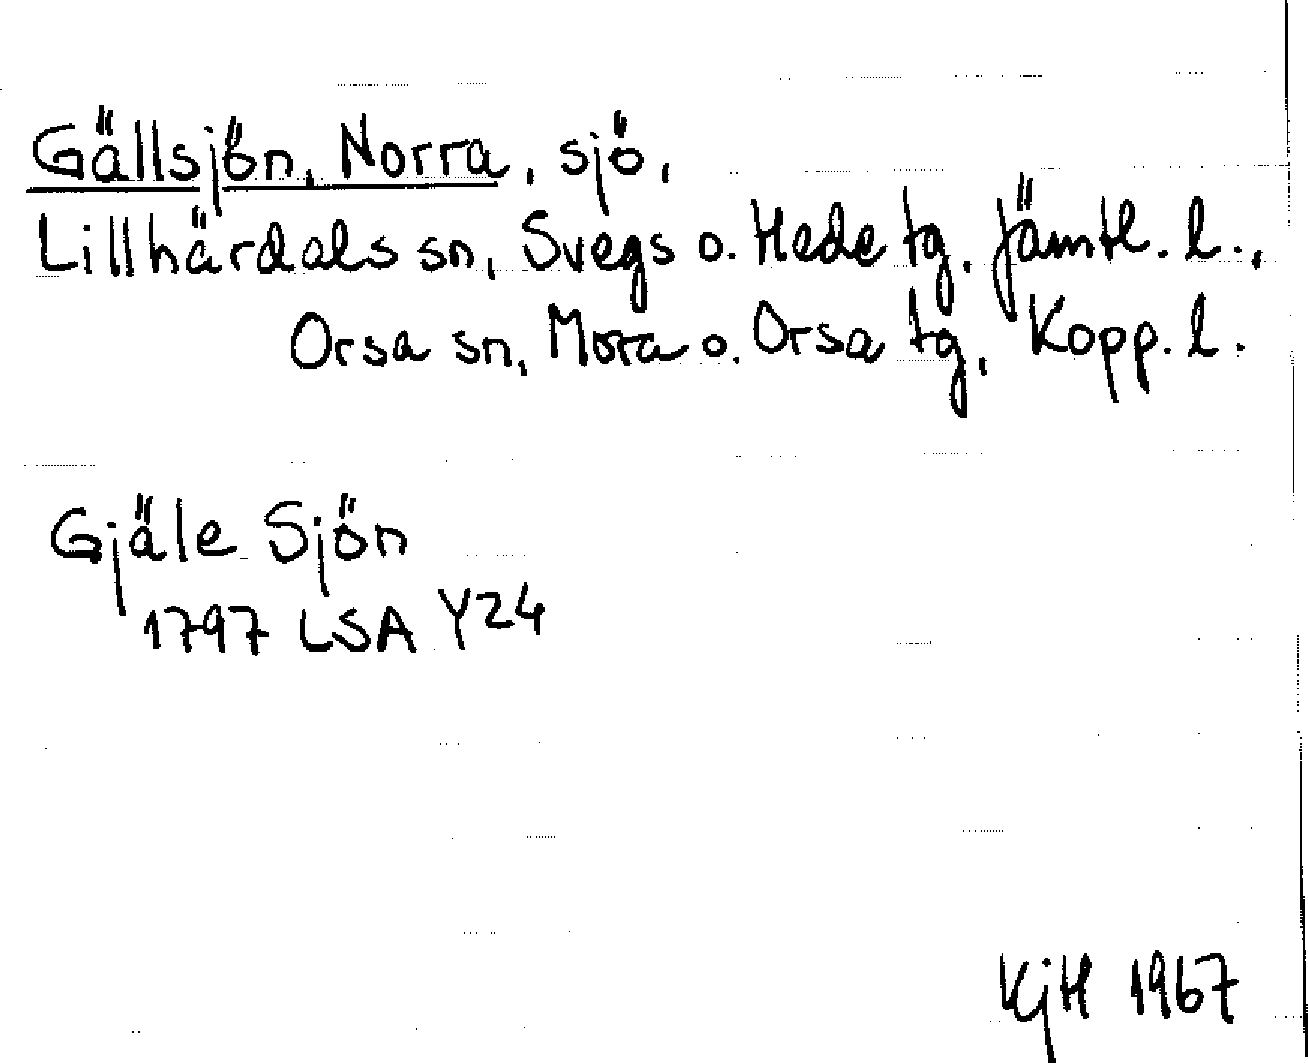 Gällsjön, Norra, sjö,
Lillhärdals sn, Svegs o. Hede tg, Jämtl. l.,
Orsa sn, Mora o. Orsa tg, Kopp. l.
Gjäle Sjön
1797 LSA Y24
KjH 1967